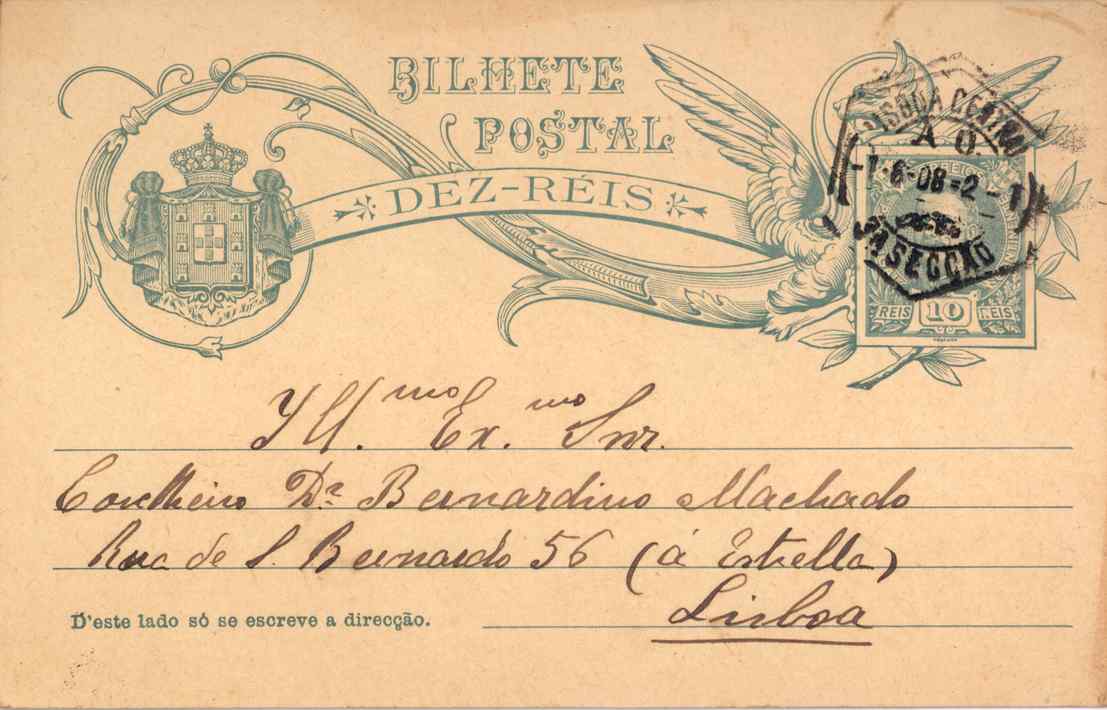 BILHETE
POSTAL
DEZ-RÉIS
LISBOA CENTRAL
A O.
-1-6-08=2-T
SECÇÃO
REIS 10 REIS
Ill.mo Ex.mo Snr.
Conselheiro Dr. Bernardino Machado
Rua de S. Bernardo 56 (á Estrella)
Lisboa
D'este lado só se escreve a direcção.